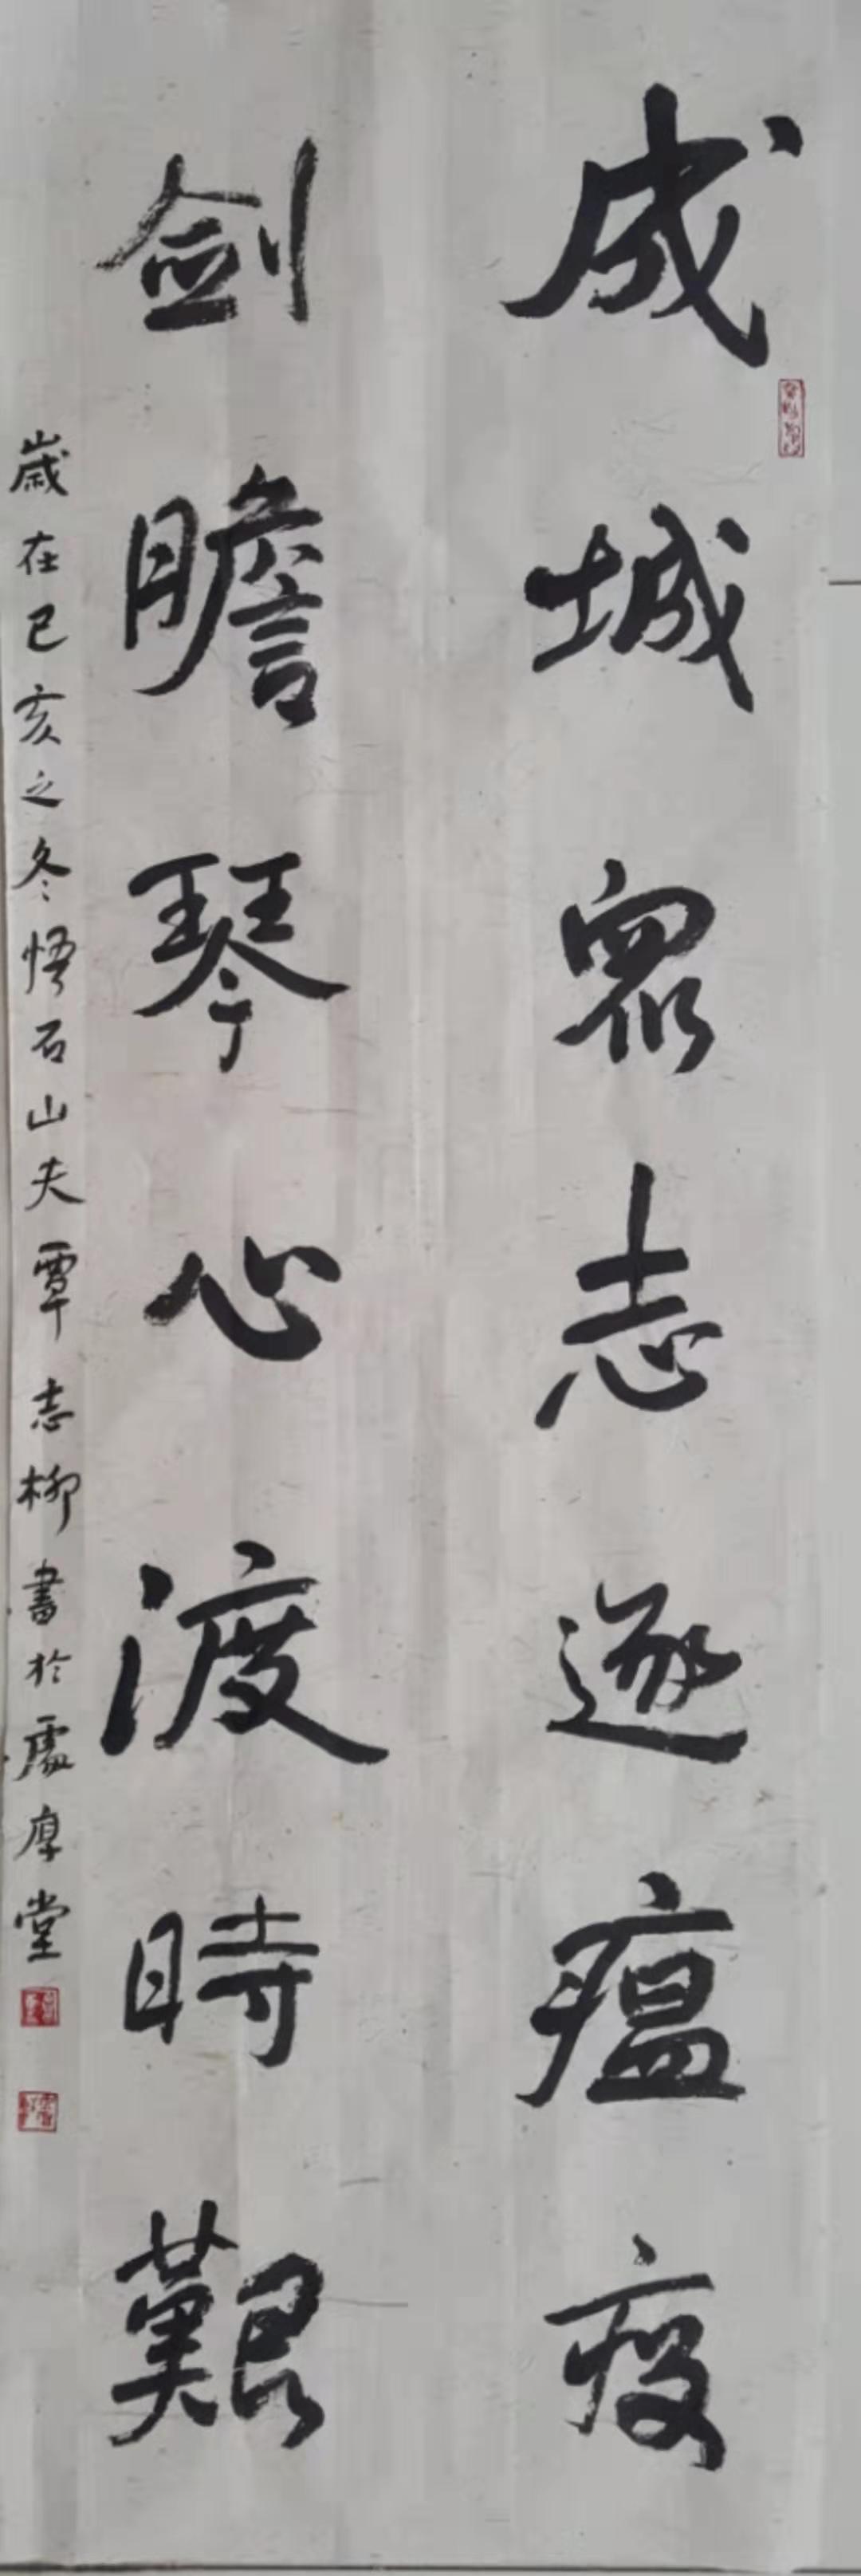 成城眾志逐瘟疫
劍膽琴心渡時艱
歲在己亥之冬悟石山夫覃志柳書於處厚堂